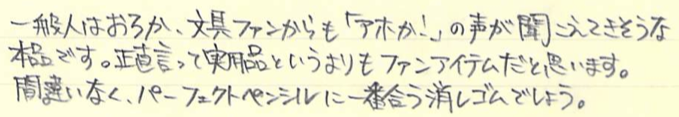 一般人はおろか、文具ファンからも「アホか!」の声が聞こえてきそうな
本品です。正直言って実用品というよりもファンアイテムだと思います。
間違いなく、パーフェクトペンシルに一番合う消しゴムでしょう。